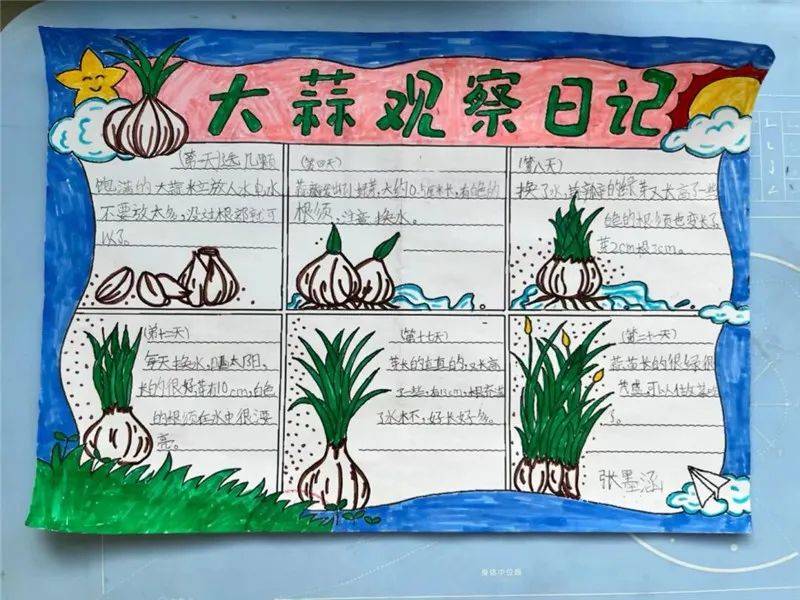 大蒜观察日记
(第一天)选几颗
饱满的大蒜粒放入水中,水
不要放太多,没过根部就可
以了。
(第四天)
蒜瓣发出小芽,大约0.5厘米长,白色的
根须,注意换水。
(第八天)
换了水,蒜瓣的绿芽又大高了一些
白色的根须也变长了,
芽2cm根3cm。
(第十二天)
每天换水,晒太阳,
长的很好,芽有10cm,白色
的根须在水中很漂
亮。
(第十七天)
芽长的直直的,又长高
了一些,有15cm,根
了水杯,好长好多。
(第二十一天)
蒜苗长的很绿很
茂盛,可以
了。
张墨涵
身体中位线